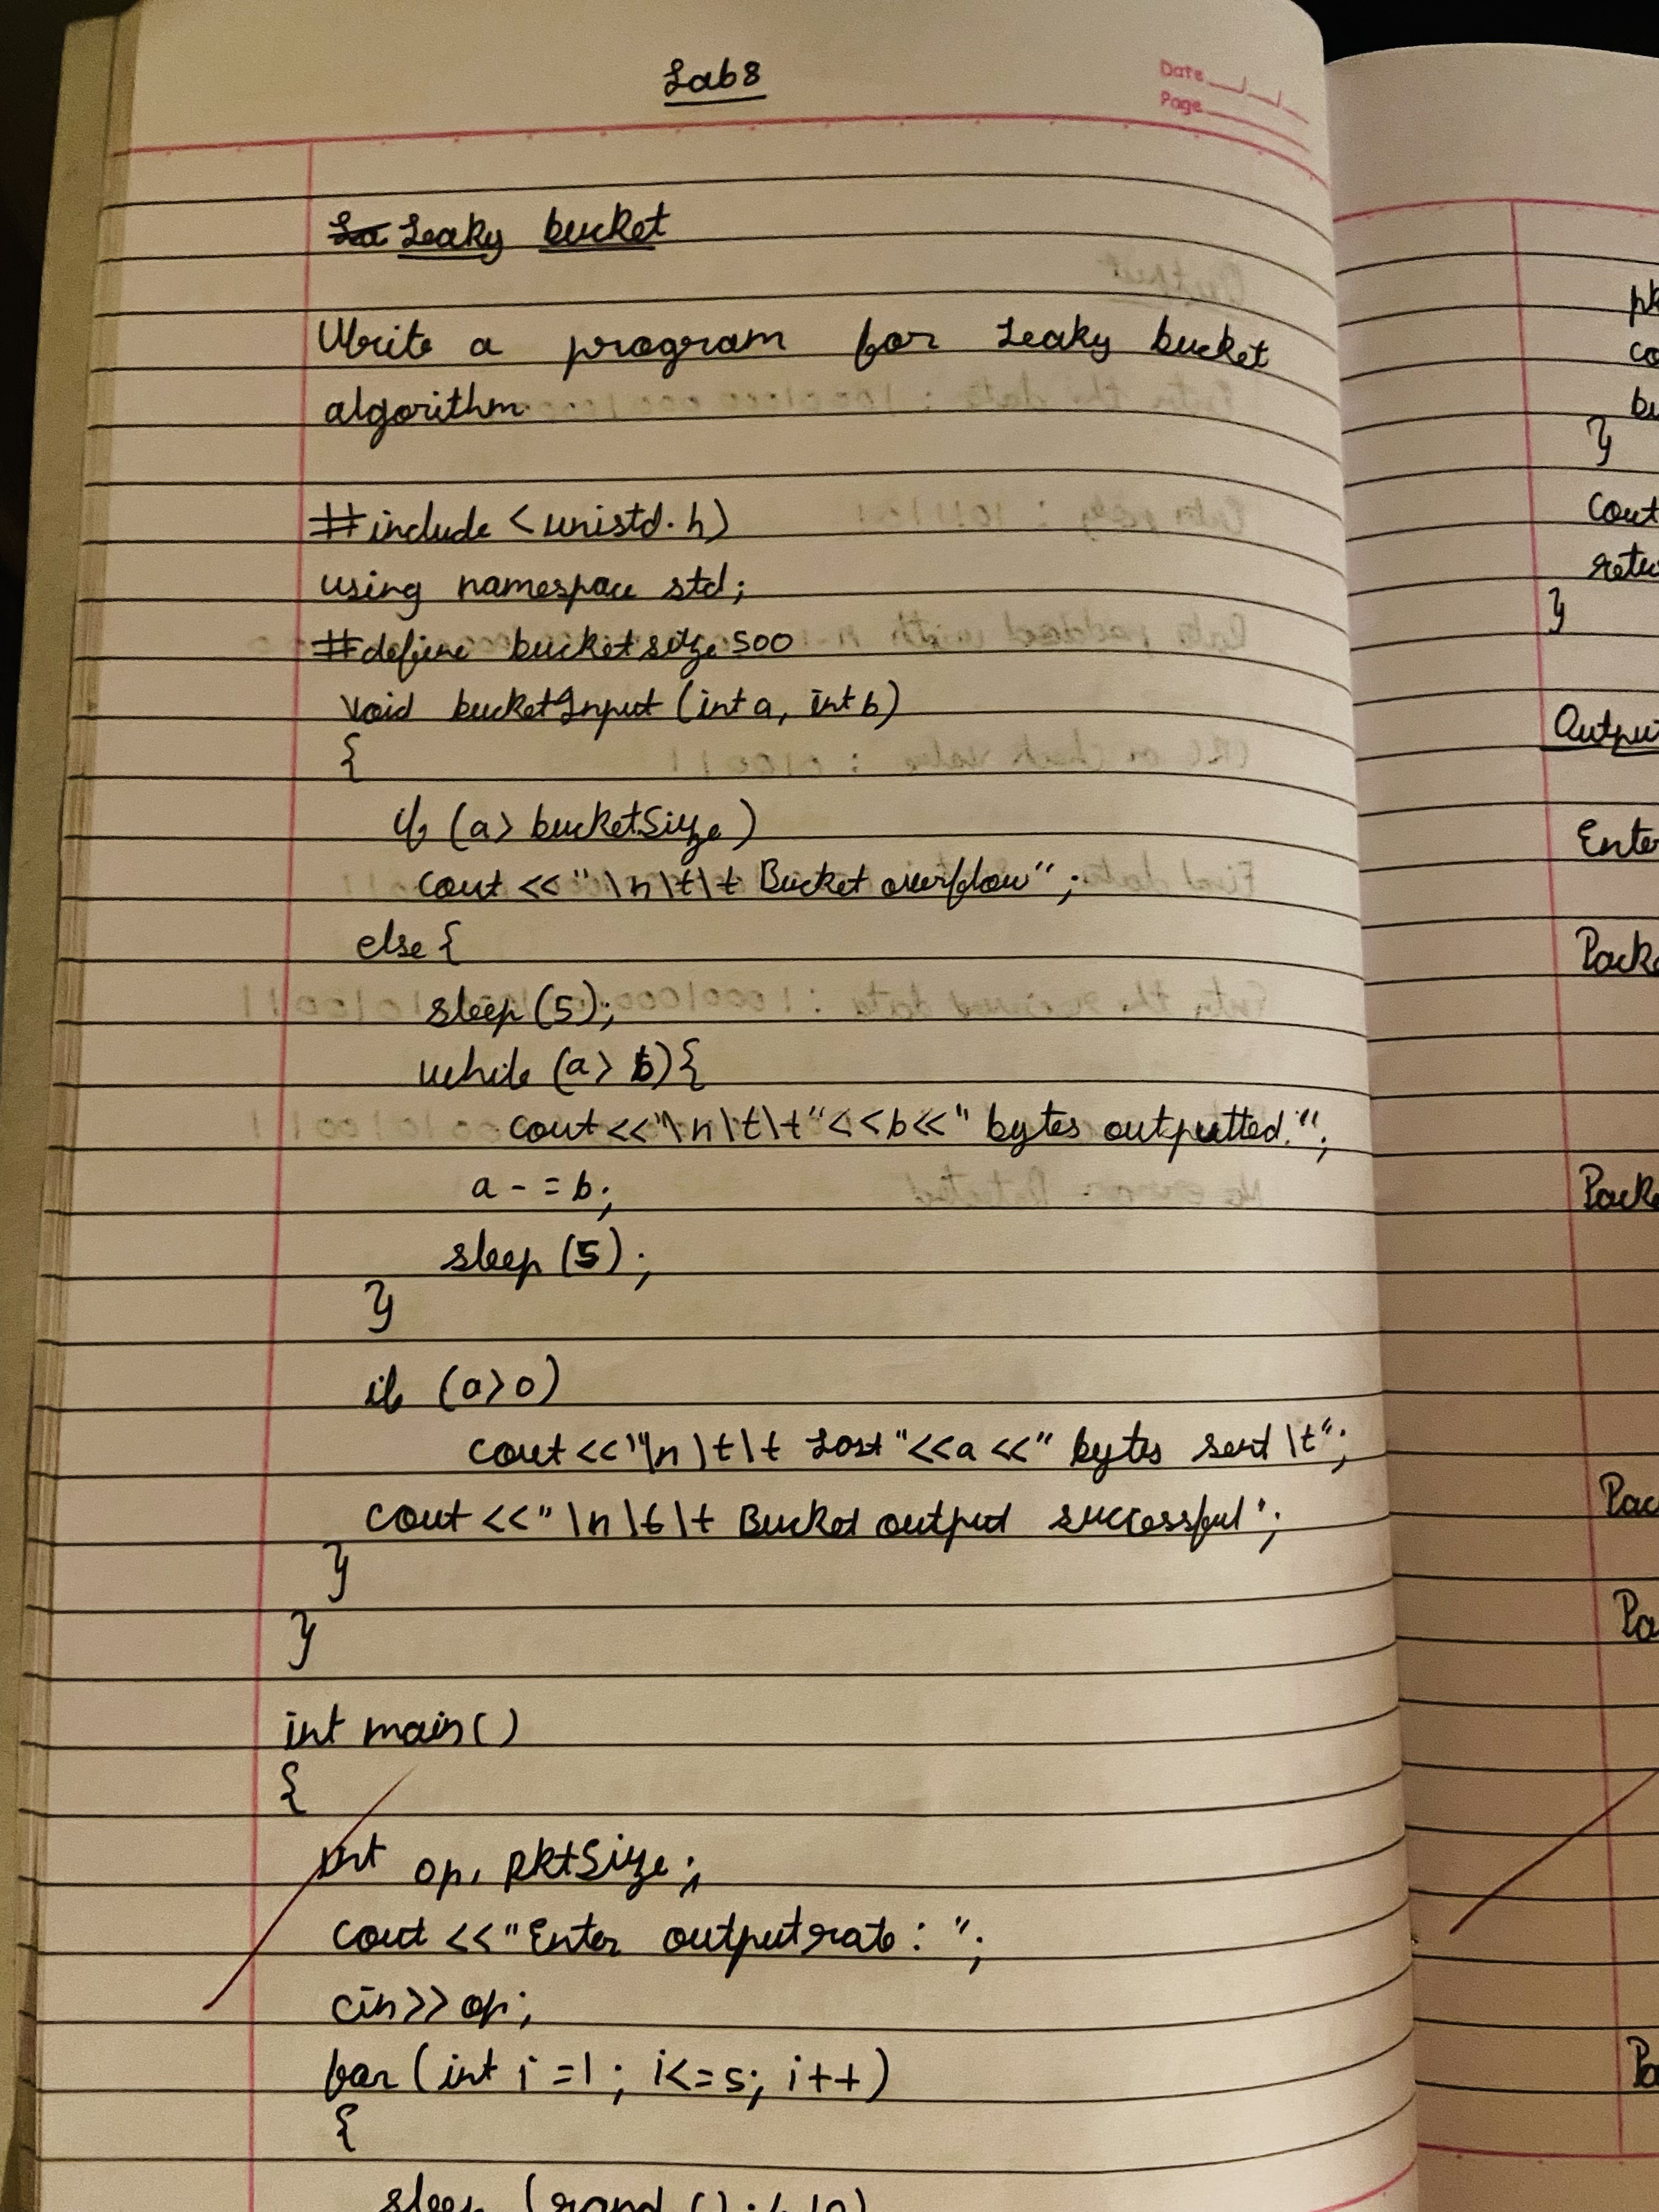 Lab 8
Date
Page
Leaky bucket
Write a program for Leaky bucket
algorithm.
#include <unistd.h>
using namespace std;
#define bucketsize 500
void bucketInput (int a, int b)
{
if (a> bucketSize)
cout <<"\n\t\t Bucket overflow";
else {
sleep (5);
while (a> b){
cout<<"\n\t\t"<<b<<" bytes outputted.";
a - = b;
sleep (5);
}
if (a>0)
cout<<"\n\t\t Last "<<a<<" bytes sent \t";
cout<<"\n\t\t Bucket output successful";
}
}
int main()
{
int op, pktSize;
cout <<"Enter output rate: ";
cin>>op;
for (int i =1; i<=5; i++)
{
sleep (rand () % 10)
}
cout
}
Output
Enter